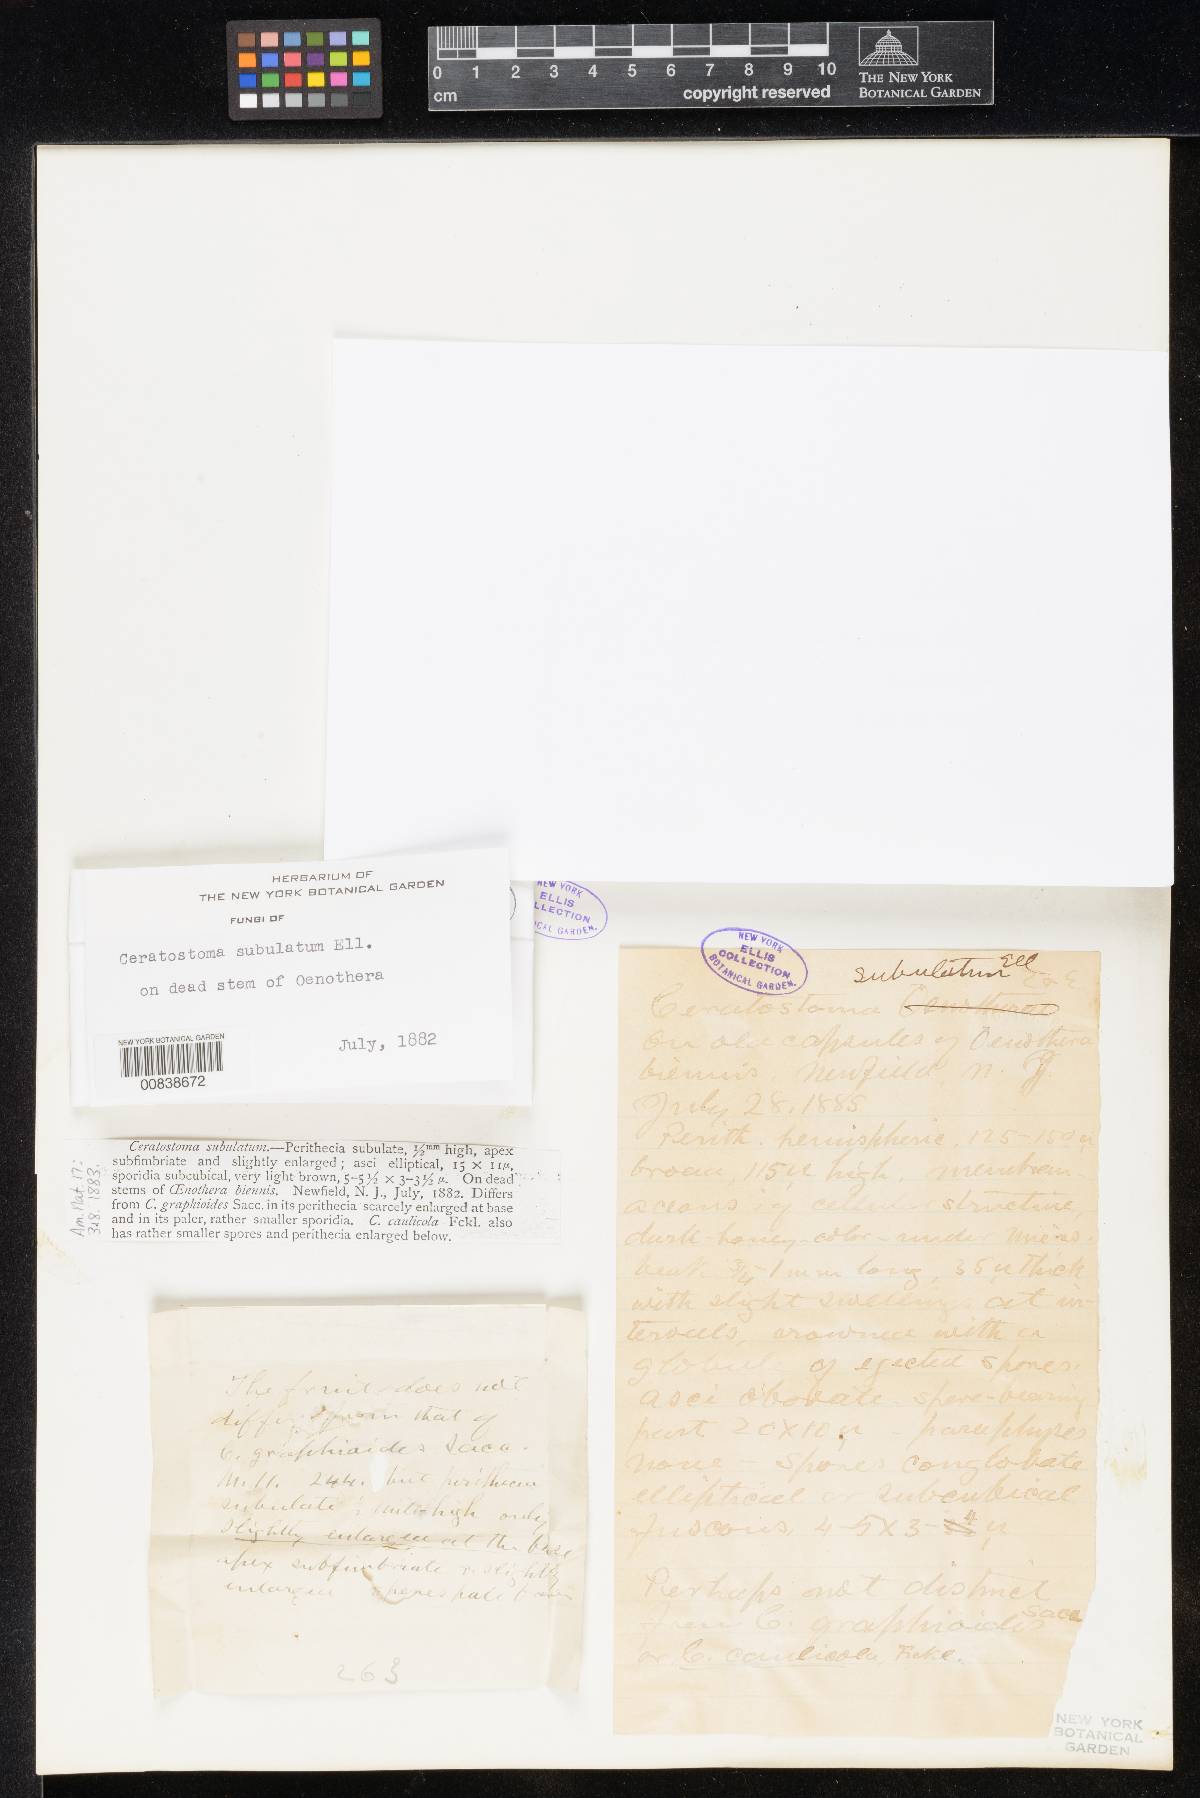 0 1 2 3 4 5 6 7 8 9 10
cm
copyright reserved
THE NEW YORK
BOTANICAL GARDEN
HERBARIUM OF
THE NEW YORK BOTANICAL GARDEN
FUNGI OF
Ceratostoma subulatum Ell.
on dead stem of Oenothera
July, 1882
NEW YORK BOTANICAL GARDEN
00838672
NEW YORK
ELLIS
LLECTION
ICAL GARDEN.
Am. Nat. 17:
318. 1883.
Ceratostoma subulatum.—Perithecia subulate, ½mm high, apex
subfimbriate and slightly enlarged; asci elliptical, 15 × 11μ,
sporidia subcubical, very light brown, 5-5½ × 3-3½ μ. On dead
stems of Œnothera biennis. Newfield, N. J., July, 1882. Differs
from C. graphioides Sacc. in its perithecia scarcely enlarged at base
and in its paler, rather smaller sporidia. C. caulicola Fckl. also
has rather smaller spores and perithecia enlarged below.
The fruit does not
differ from that of
C. graphioides Sacc.
M. It. 244. but perithecia
subulate high only
slightly enlarged at the base
apex subfimbriate & slightly
enlarged spores pale brown
263
NEW YORK
ELLIS
COLLECTION
BOTANICAL GARDEN.
subulatum Ell
E & E
Ceratostoma Oenotherae
On old capsules of Oenothera
biennis, Newfield, N. J.
July 28, 1885
Perith. hemispheric 125-150 μ
broad, 115 μ high membran-
aceous structure,
dark-honey-color-under micros.
beak ¾-1 mm long, 35 μ thick
with slight swellings at in-
tervals, crowned with a
globule of ejected spores.
asci obovate. spore-bearing
part 20 X 10 μ - paraphyses
none - spores conglobate
elliptical or subcubical
fuscous, 4-5 X 3-4 μ
Perhaps not distinct
from C. graphioides Sacc
or C. caulicola Fckl.
NEW YORK
BOTANICAL
GARDEN